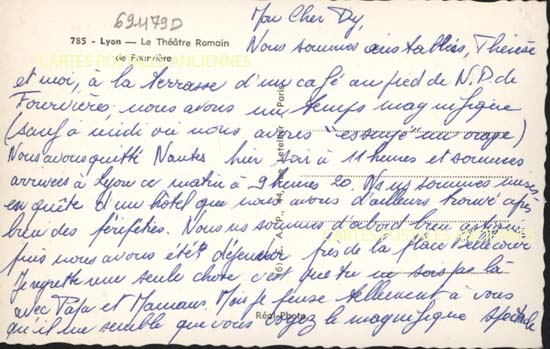 691179D
Mon Cher Dy,
785 - Lyon — Le Théâtre Romain
de Fourvière
Nous sommes installées, Thérèse
et moi, à la terrasse d'un café au pied de N.D. de
Fourvières, nous avons un temps magnifique
(sauf à midi où nous avons "essuyé" un orage)
Nous avons quitté Nantes hier soir à 11 heures et sommes
arrivées à Lyon ce matin à 9 heures 20. Nous sommes mises
en quête d'un hôtel que nous avons d'ailleurs trouvé après
bien des péripéties. Nous nous sommes d'abord bien
puis nous avons été déjeuner près de la place Bellecour
Je regrette une seule chose c'est que tu ne sois pas là
avec Papa et Maman. Mais je pense tellement à vous
qu'il me semble que vous voyez le magnifique spectacle
Réal-Photo
CARTES POSTALES ANCIENNES